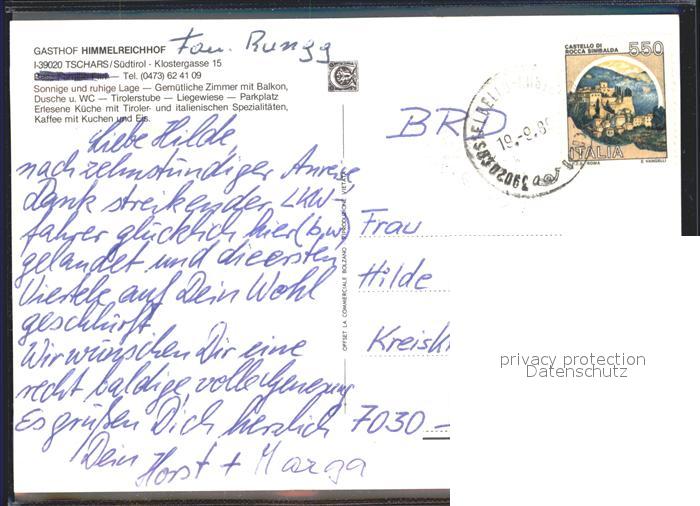 GASTHOF HIMMELREICHHOF Fam. Rungg
I-39020 TSCHARS/Südtirol - Klostergasse 15
Tel. (0473) 62 41 09
Sonnige und ruhige Lage — Gemütliche Zimmer mit Balkon,
Dusche u. WC — Tirolerstube — Liegewiese — Parkplatz
Erlesene Küche mit Tiroler- und italienischen Spezialitäten,
Kaffee mit Kuchen und Eis.
Liebe Hilde,
nach zehnstündiger Anreise
Dank streikender LKW-
fahrer glücklich hier (bw)
gelandet und die ersten
Viertele auf Dein Wohl
geschlürft
Wir wünschen Dir eine
recht baldige, volle Genesung
Es grüßen Dich herzlich
Dein Horst + Marga
OFFSET LA COMMERCIALE BOLZANO RIPRODUZIONE VIETATA
BRD
Frau
Hilde
Kreisk
7030 –
CASTELLO DI
ROCCA SINIBALDA
550
ITALIA
ROMA
E. VANGELLI
39020
privacy protection
Datenschutz